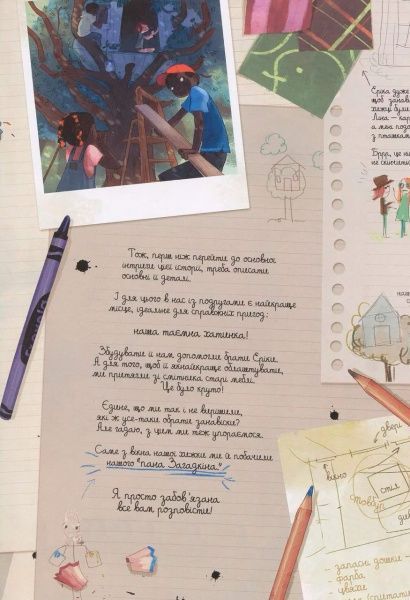 Тож, перш ніж перейти до основної
інтриги цієї історії, треба описати
основні її деталі.
І для цього в нас із подругами є найкраще
місце, ідеальне для справжніх пригод:
наша таємна хатинка!
Збудувати її нам допомогли брати Еріки.
А для того, щоб її якнайкраще облаштувати,
ми притягли зі смітника старі меблі.
Це було круто!
Єдине, що ми так і не вирішили,
які ж усе-таки обрати занавіски?
Але гадаю, з цим ми теж упораємося.
Саме з вікна нашої хижки ми й побачили
нашого "пана Загадкіна".
Я просто зобов'язана
все вам розповісти!
Еріка дуже
щоб занав
хижці були
а мені подо
з пташкам
двері
вікно
стіл
див
- запасні дошки -
- фарба
- цвяхи